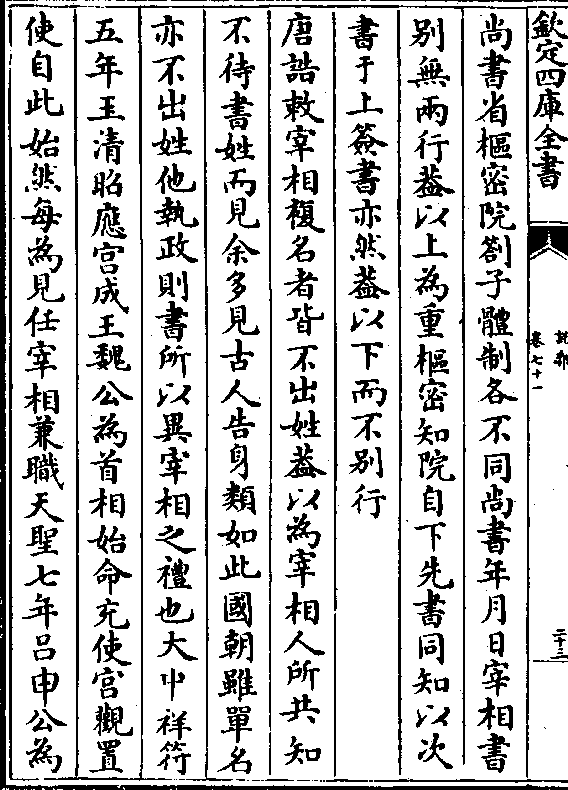 欽定四庫全書
說郛
卷七十一
二十三
尚書省樞密院劄子體制各不同尚書年月日宰相書
别無兩行葢以上為重樞密知院自下先書同知以次
書于上簽書亦然葢以下而不别行
唐誥敕宰相複名者皆不出姓葢以為宰相人所共知
不待書姓而見余多見古人告身類如此國朝雖單名
亦不出姓他執政則書所以異宰相之禮也大中祥符
五年玉清昭應宮成王魏公為首相始命充使宮觀置
使自此始然每為見任宰相兼職天聖七年吕申公為